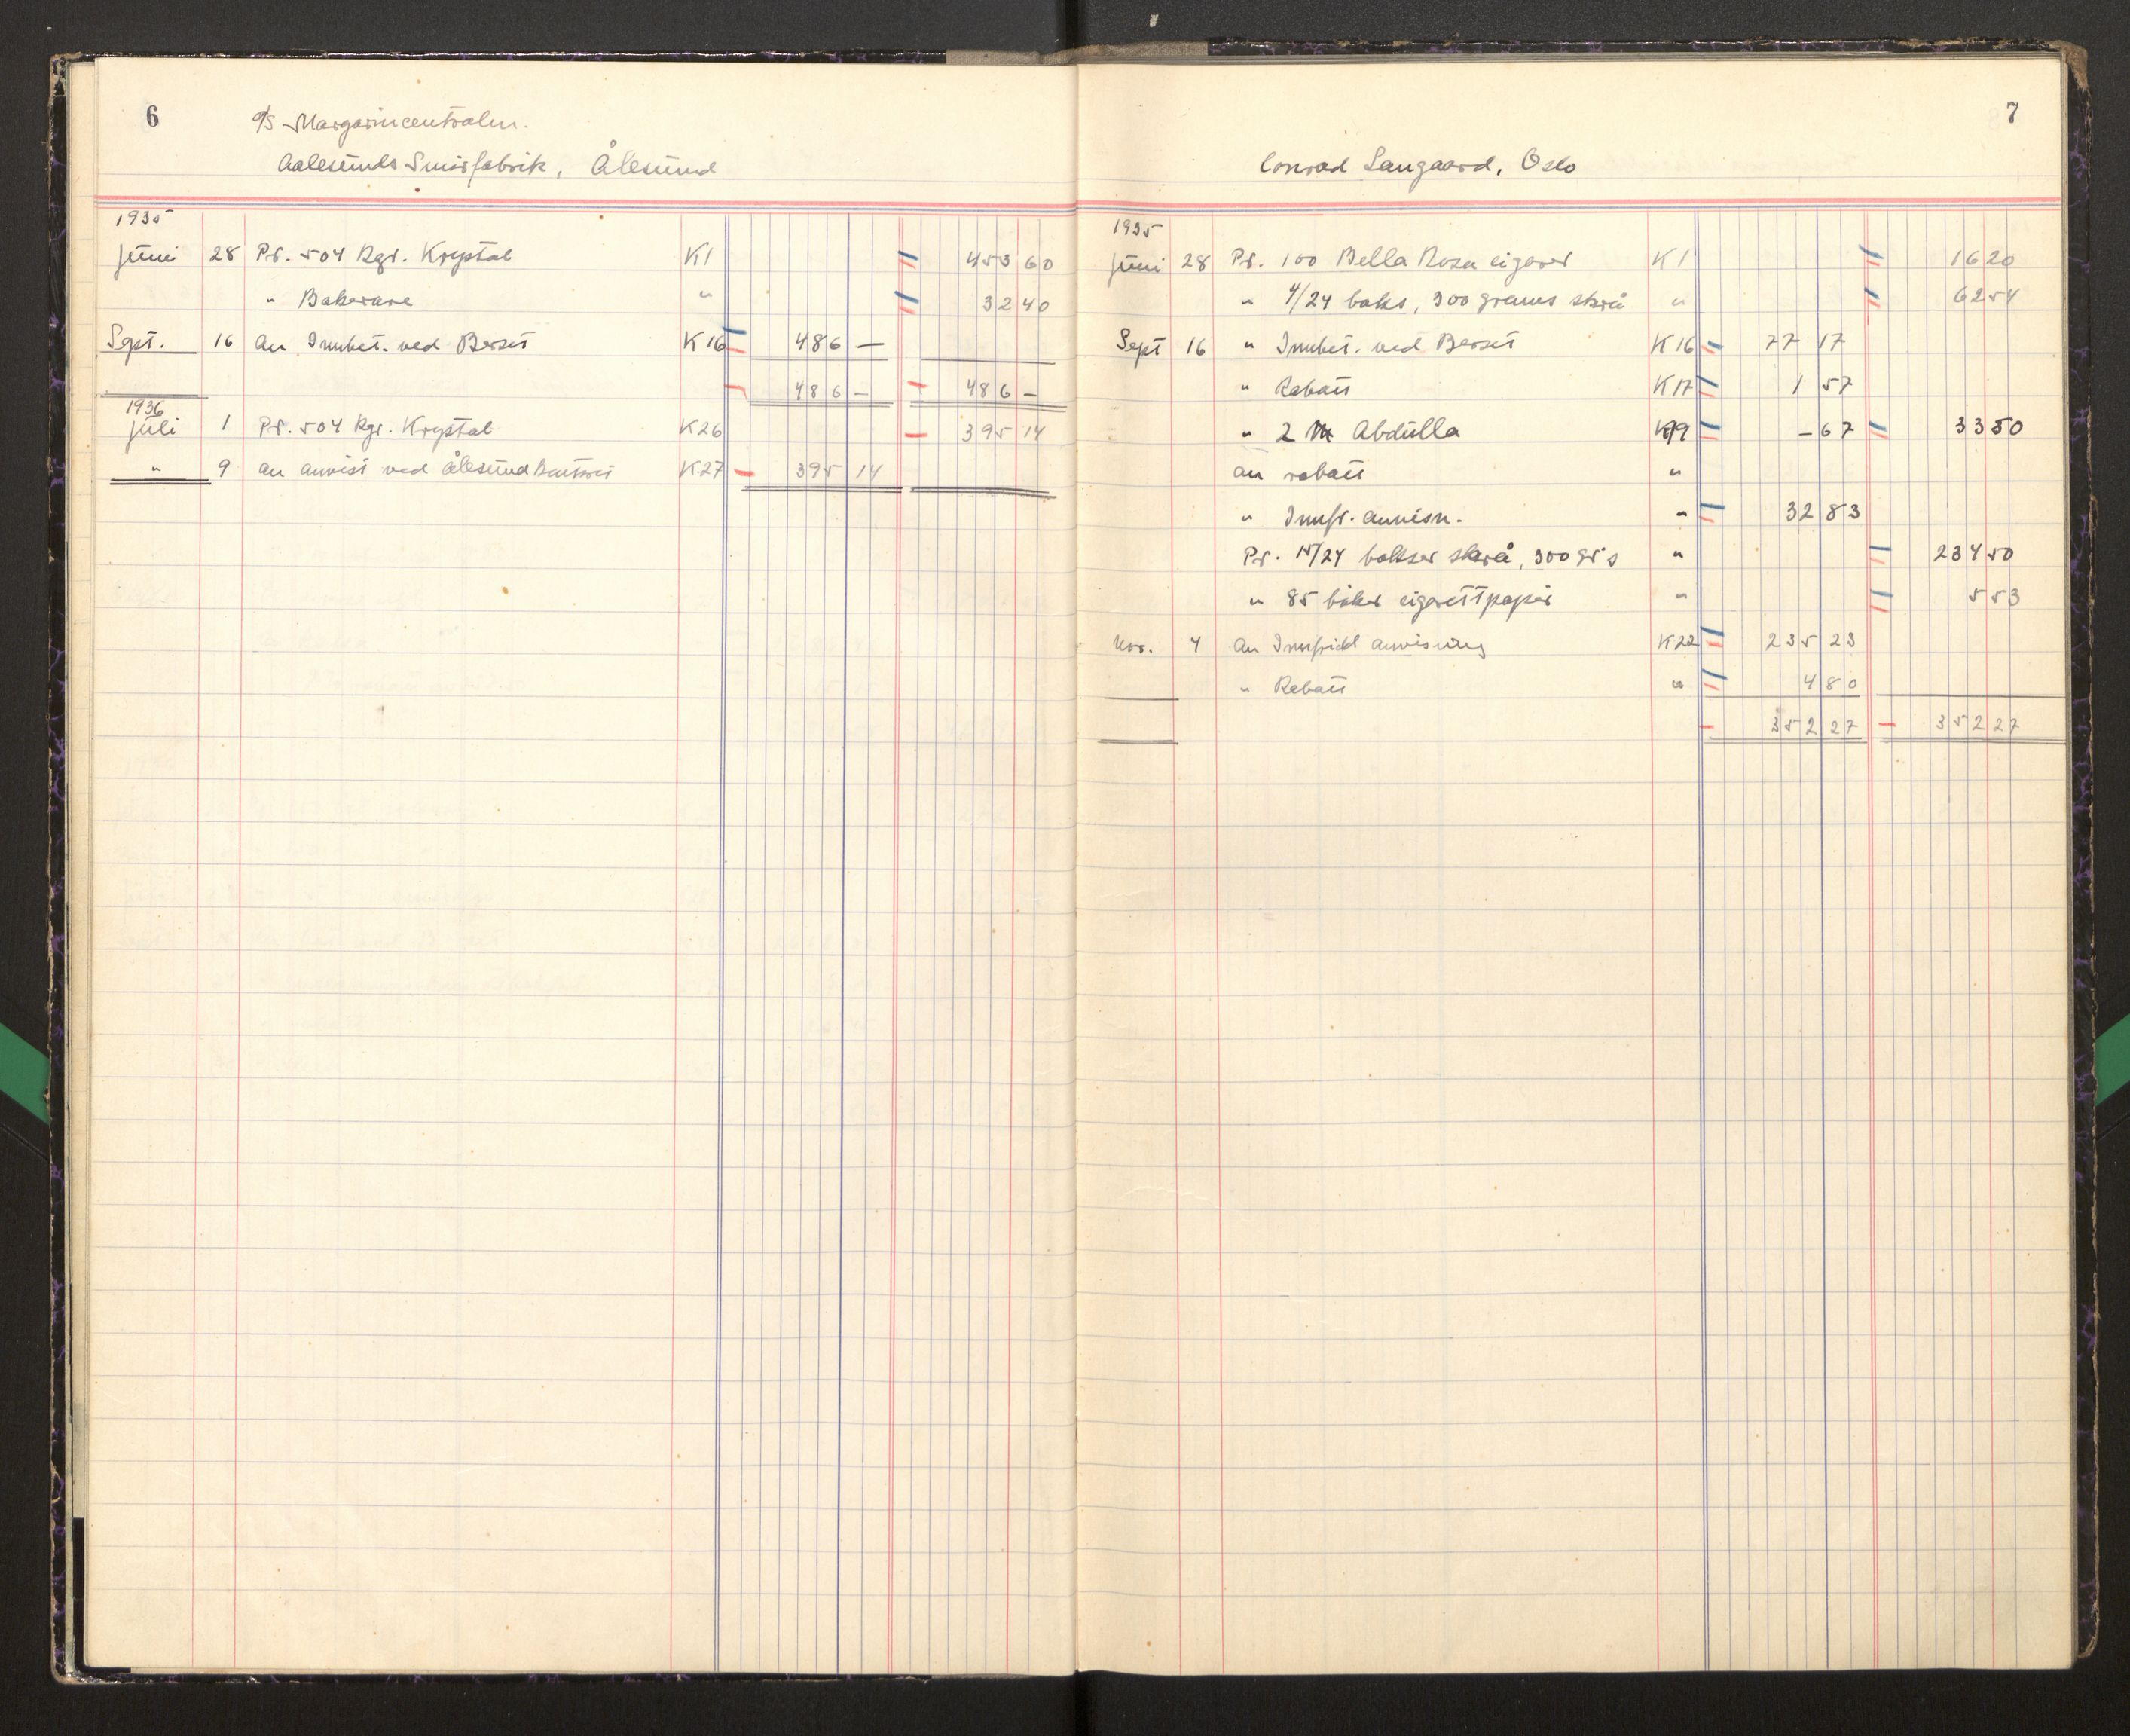 6
A/S Margarincentralen.
Aalesunds Smørfabrik, Ålesund
1935
Juni 28 Pr. 504 Kgr. Krystal K1 453 60
" Bakervare " 32 40
Sept. 16 An Innbet. ved Berset K16 486 —
486 — 486 —
1936
Juli 1 Pr. 504 Kgr. Krystal K26 395 14
" 9 an anvist ved Ålesund K27 395 14
7
Conrad Langaard, Oslo
1935
Juni 28 Pr. 100 Bella Rosa cigarer K1 16 20
" 4/24 boks, 300 grams skrå " 62 54
Sept 16 " Innbet. ved Berset K16 77 17
" Rabatt K17 1 57
" 2 M Abdulla K19 — 67 33 50
an rabatt "
" Innfr. anvisn. " 32 83
Pr. 15/24 bokser skrå, 300 gr's " 234 50
" 85 bøker cigarettpapir " 5 53
Nov. 4 An Innfridd anvisning K22 235 23
" Rabatt " 4 80
352 27 352 27